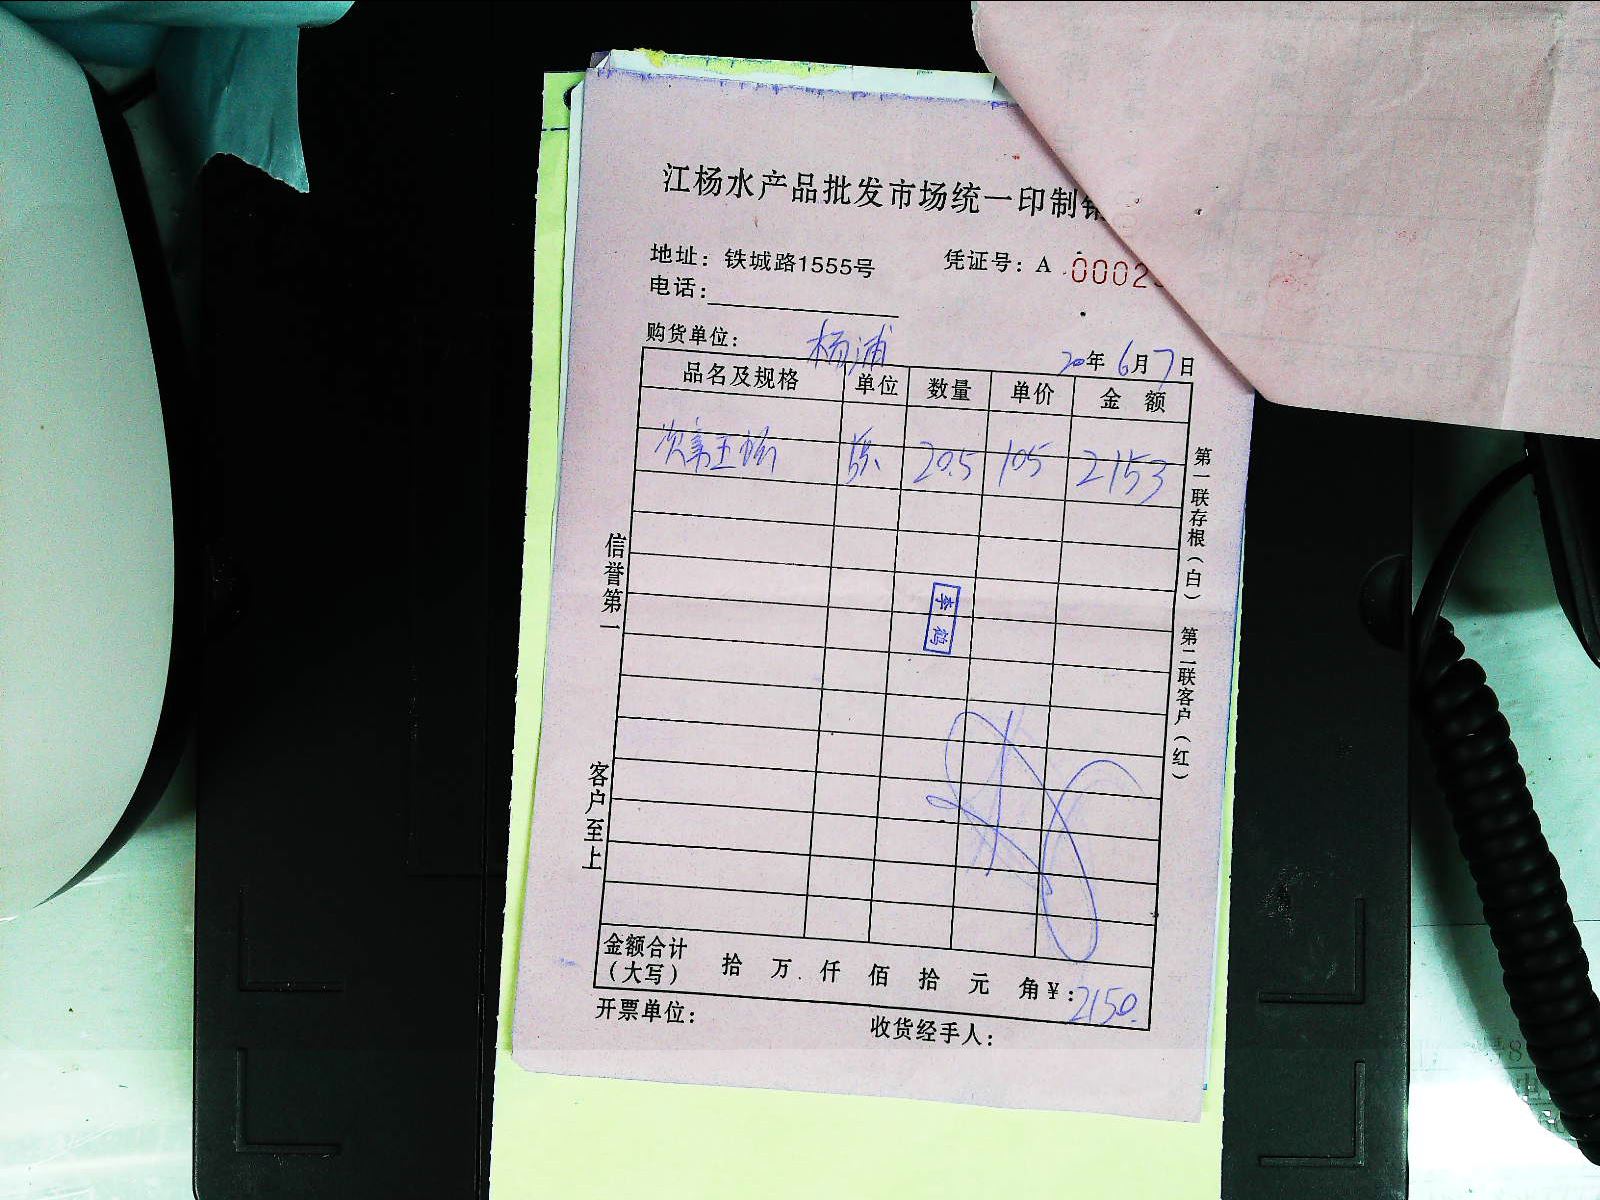 江杨水产品批发市场统一印制销
地址：铁城路1555号
凭证号：A 0002
电话：
购货单位： 杨浦
20年6月7日
品名及规格 单位 数量 单价 金 额
20.5 105 2153
李鹤
第一联存根（白） 第二联客户（红）
信誉第一
客户至上
金额合计（大写） 拾 万 仟 佰 拾 元 角￥：2150.
开票单位：
收货经手人：